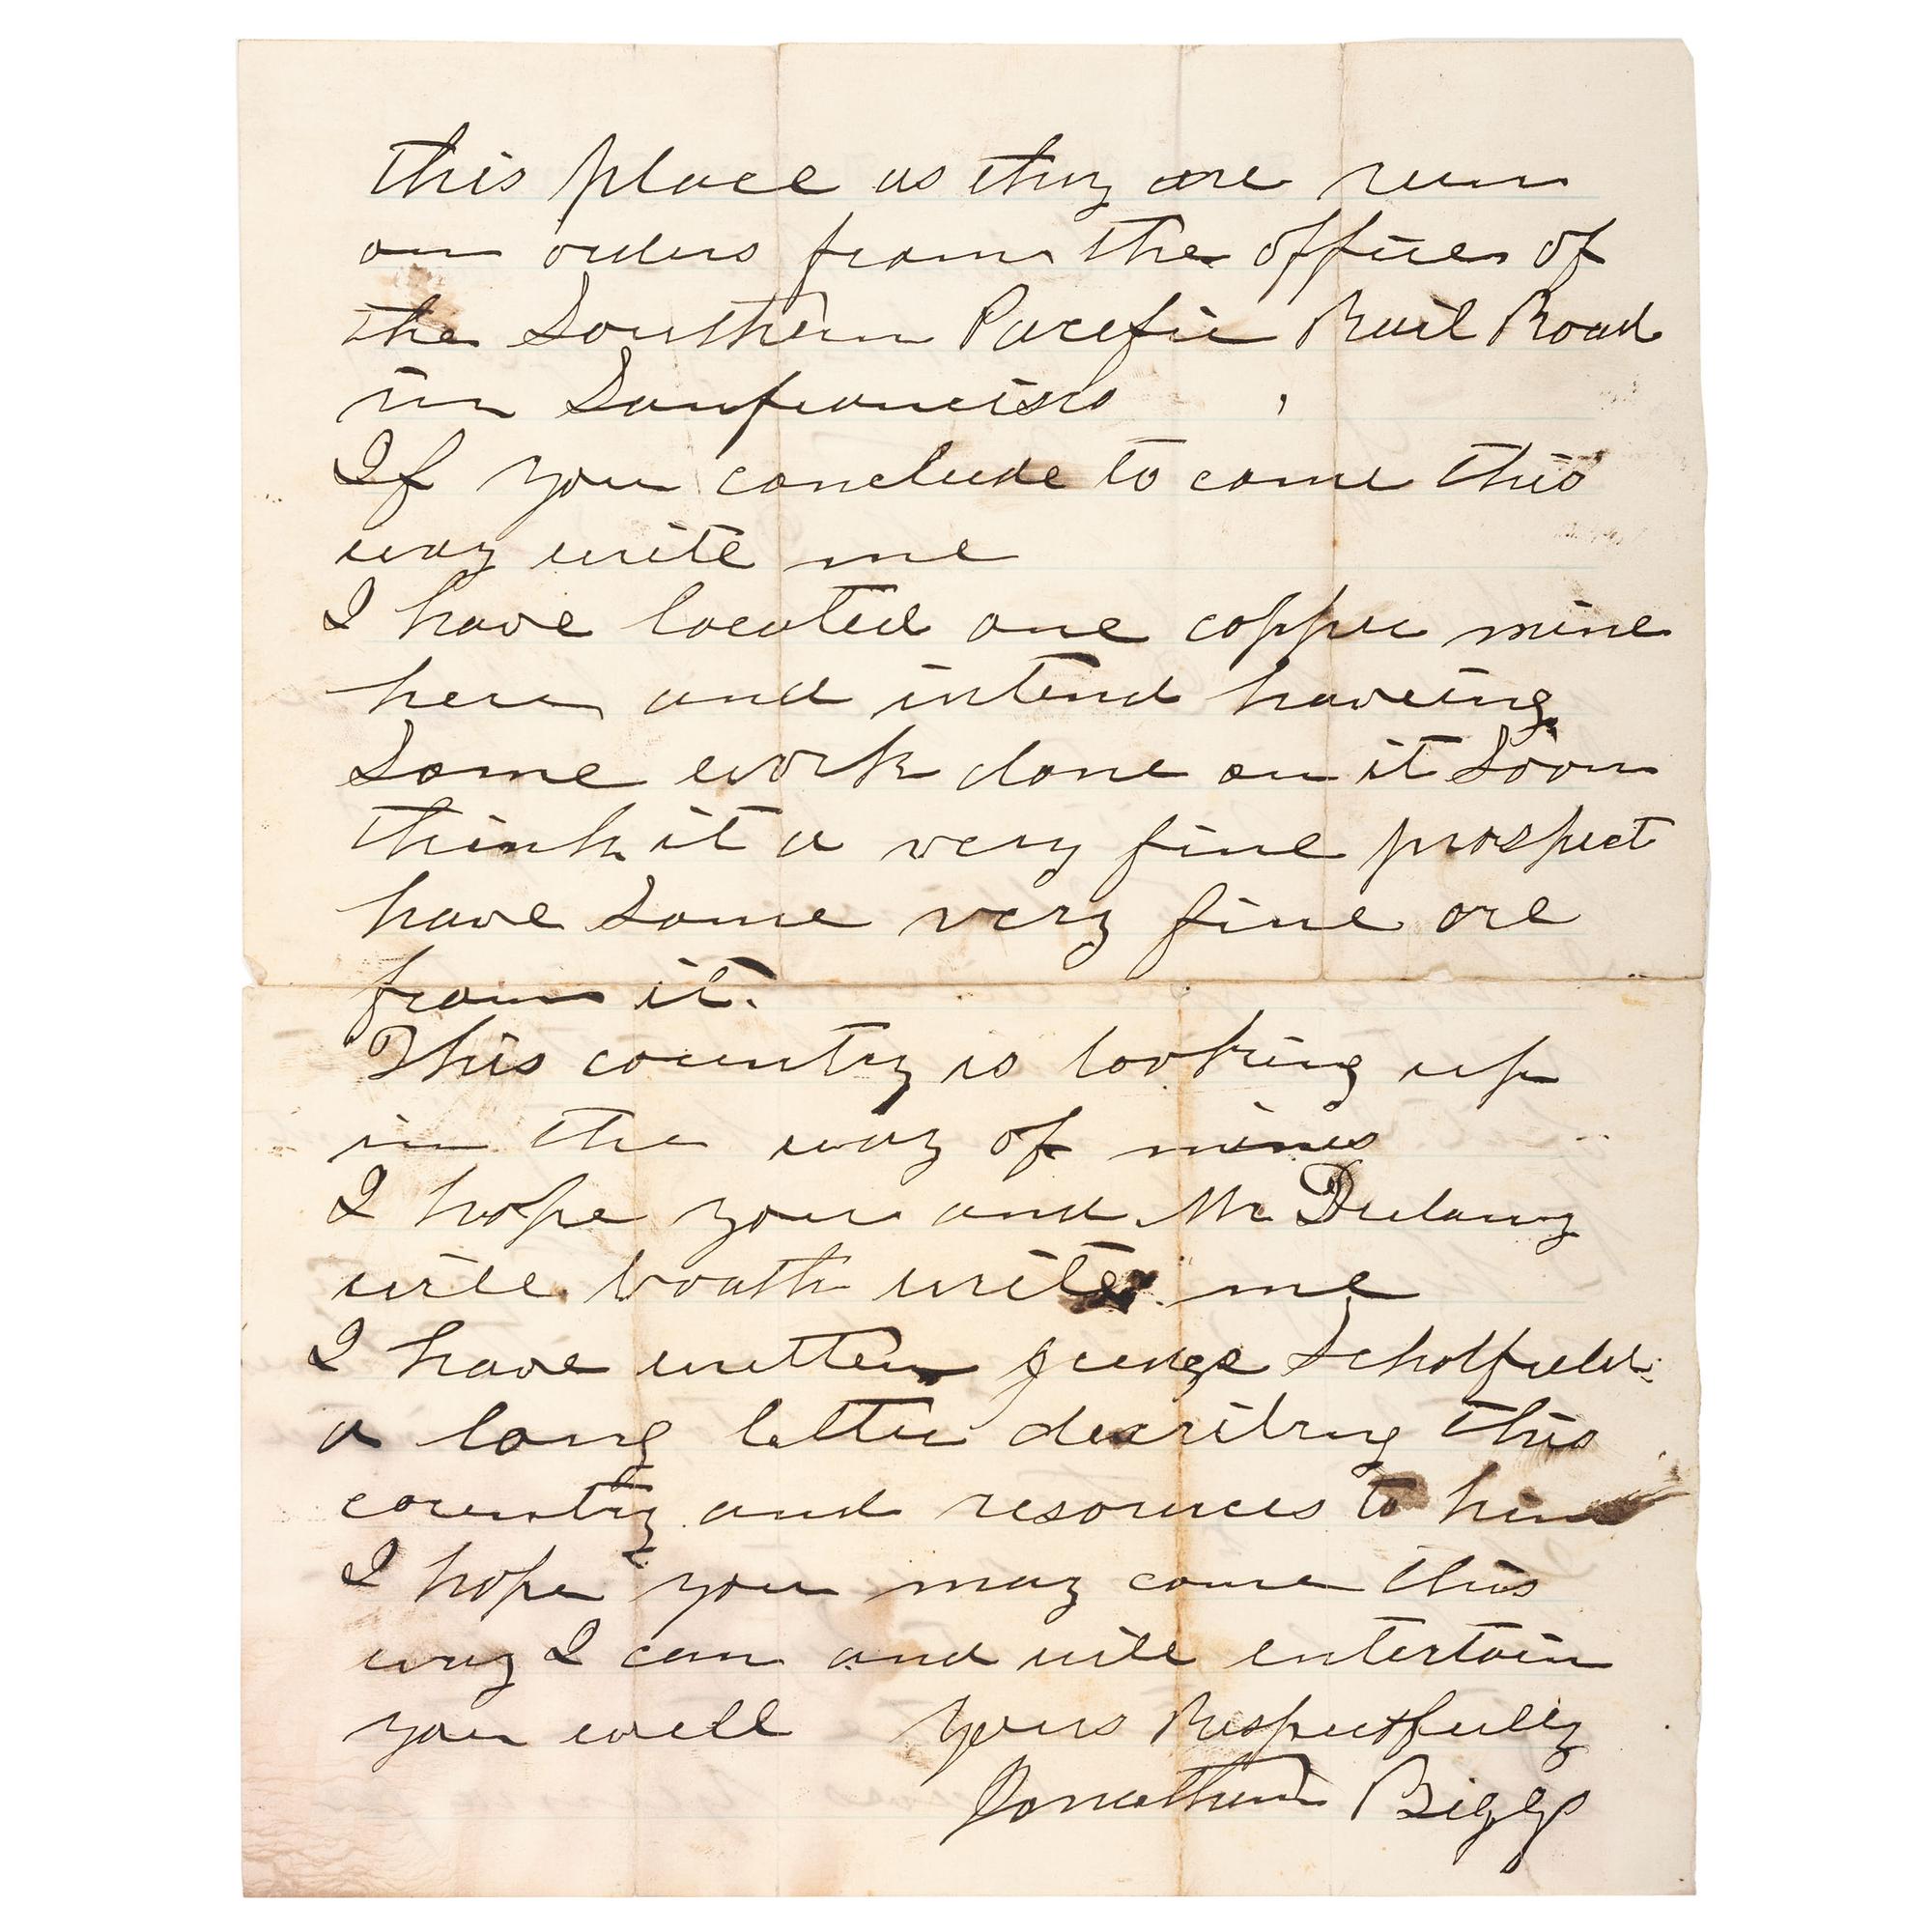 this place as they are run
on orders from the offices of
the Southern Pacific Rail Road
in Sanfrancisco
If you conclude to come this
way write me
I have located one copper mine
here and intend haveing
Some work done on it Soon
think it a very fine prospect
have Some very fine ore
from it.
This country is looking up
in the way of mines
I hope you and Mr Dulany
will boath write me
I have written Judge Scholfield
a long letter describing this
country and resources to him
I hope you may come this
way I can and will entertain
you well Yours Respectfully
Jonathan Biggs